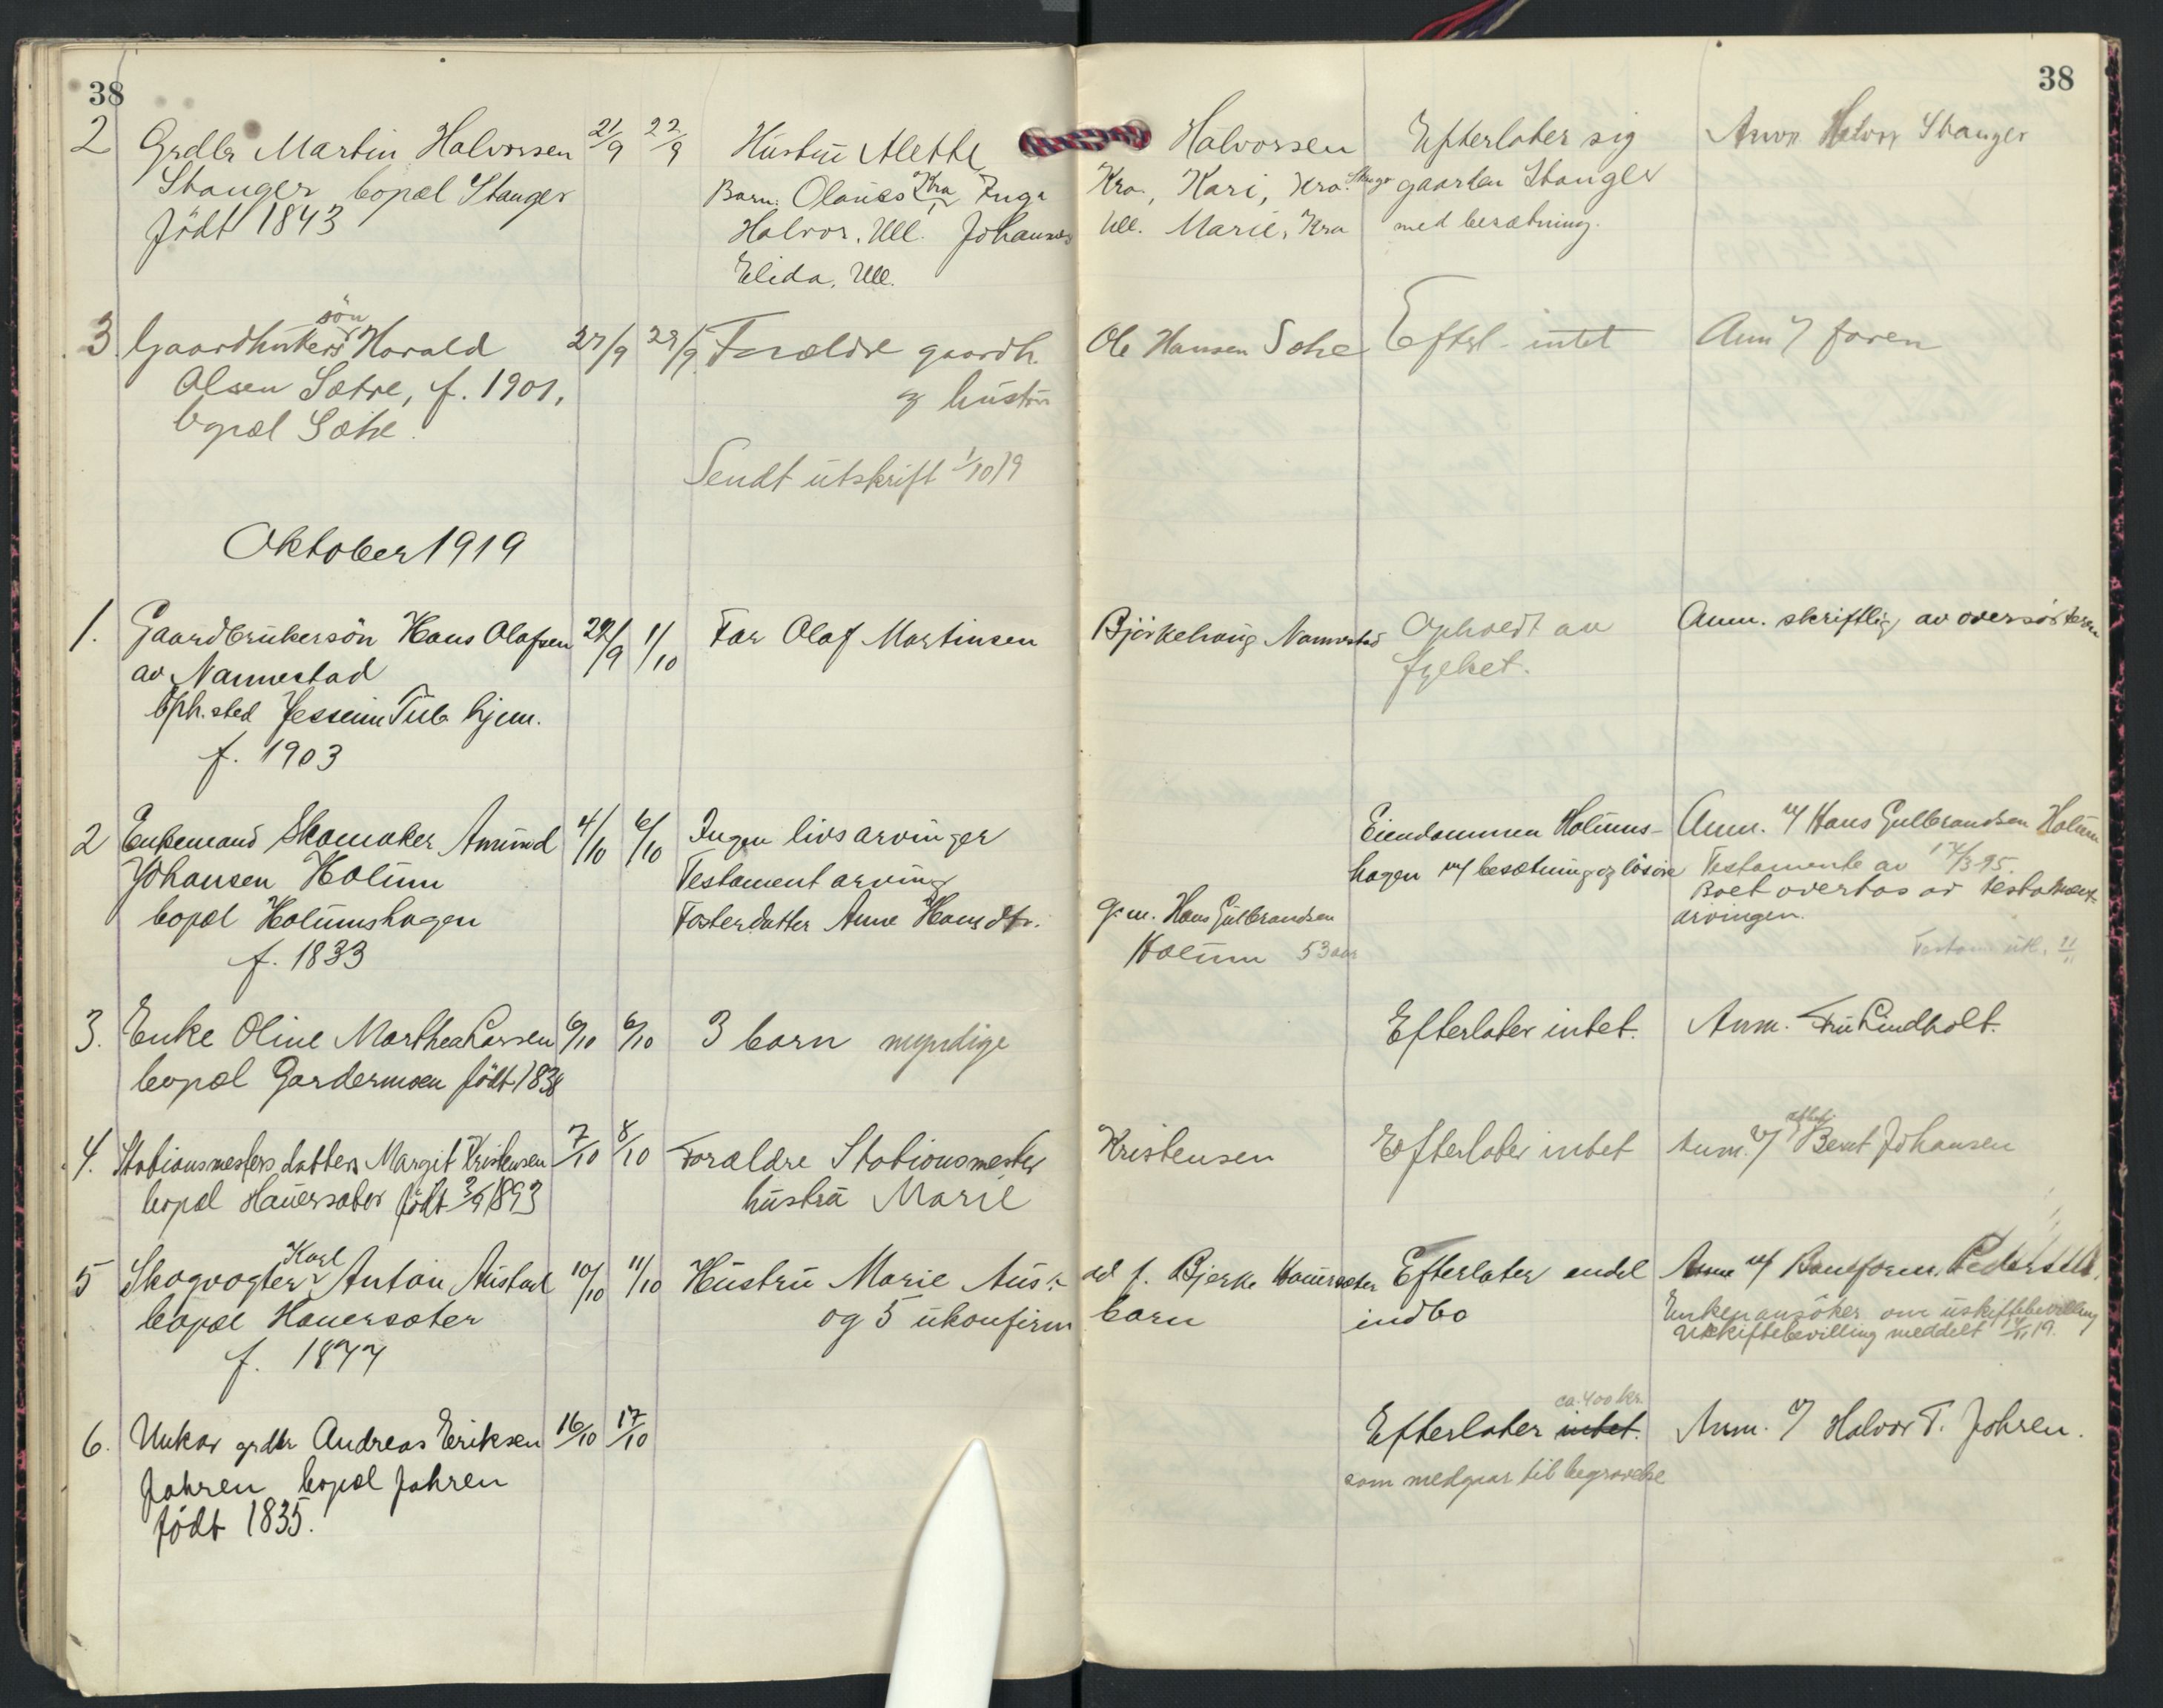 38
38
2 Grdbr Martin Halvorsen 21/9 22/9 Hustru Alette Halvorsen Efterlater sig Anm. Halvor Stanger
Stanger bopæl Stanger Barn: Olaües Kra Inga Kra., Kari, Kra. gaarden Stanger
född 1843 Halvor, Ull. Johannes Ull. Marie, Kra med besætning.
Elida, Ull.
3. Gaardbrukersön Harald 27/9 29/9 Forældre gaardb. Ole Hansen Sætre Efterl. intet Anm v/ faren
Olsen Sætre, f. 1901, og hustru
bopæl Sætre.
Sendt utskrift 1/10 19
Oktober 1919
1. Gaardbrukersön Hans Olafsen 29/9 1/10 Far Olaf Martinsen Björkehaug Nannestad Opholdt av Anm. skriftlig av oversösteren
av Nannestad fylket.
Oph.sted Jessheim Tub hjem.
f. 1903
2 Enkemand Skomaker Amund 4/10 6/10 Ingen livsarvinger Eiendommen Holums- Anm. v/ Hans Gulbrandsen Holum
Johansen Holum Testament arving hagen m/ besætning og lösöre Testamente av 17/3 95.
bopæl Holumshagen Fosterdatter Anne Hansdtr. g.m. Hans Gulbrandsen Boet overtas av testament-
f. 1833 Holum 53 aar arvingen.
Testam. utl. 11/11
3. Enke Oline Marthea Larsen 6/10 6/10 3 barn myndige Efterlater intet. Anm. Fru Lindholt.
bopæl Gardermoen födt 1838
4. Stationsmesters datter Margit Kristensen 7/10 8/10 Forældre Stationsmester Kristensen Efterlater intet Anm. v/ Bernt Johansen
bopæl Hauersæter födt 3/9 1893 hustru Marie
5 Skogvogter Karl Anton Austad 10/10 11/10 Hustru Marie Austad f. Bjerke Hauersæter Efterlater endel Anm v/ Baneform. Pedersen
bopæl Hauersæter og 5 ukonfirm barn indbo Enken ansöker om uskiftebevilling
f. 1877 Uskiftebevilling meddelt 14/11 19.
6. Unkar grdbr Andreas Eriksen 16/10 17/10 Efterlater intet. ca. 400 kr. Anm. v/ Halvor T. Jahren.
Jahren bopæl Jahren som medgaar til begravelse
födt 1835.